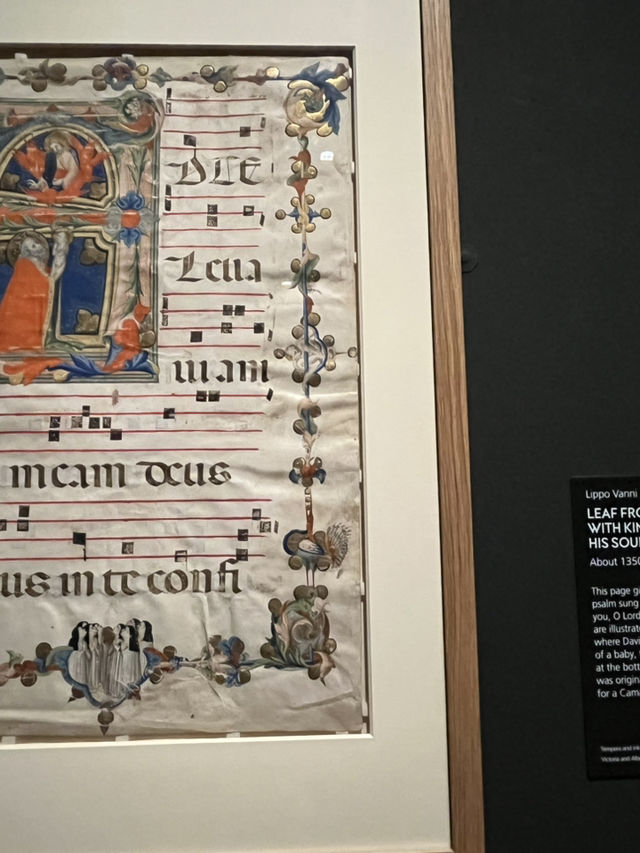 DTE
Leua
ui ani
meam deus
us in te confi
Lippo Vanni
LEAF FRO
WITH KIN
HIS SOU
About 1350
This page g
psalm sung
you, O Lord
are illustrat
where Davi
of a baby,
at the bott
was origin
for a Cam
Tempera and ink
Victoria and Albe